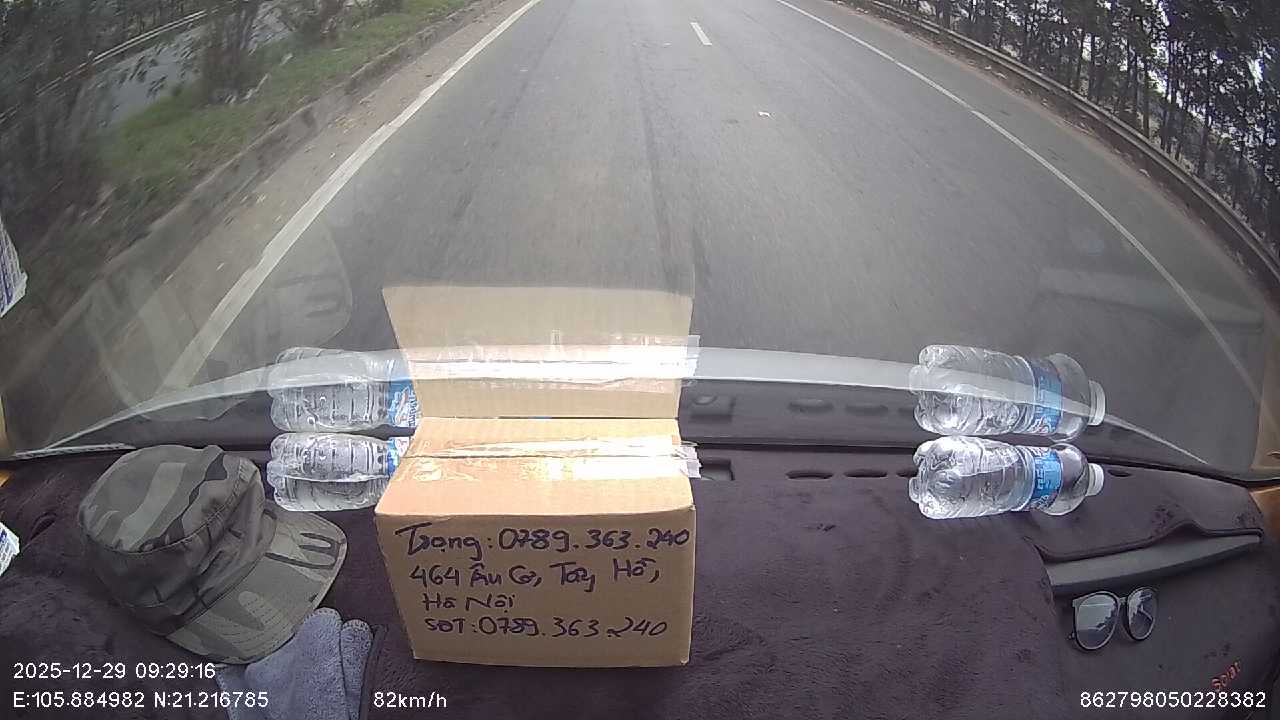 Trọng: 0789.363.240
464 Âu Cơ, Tây Hồ,
Hà Nội
SĐT: 0789.363.240
2025-12-29 09:29:16
E:105.884982 N:21.216785 82km/h 862798050228382